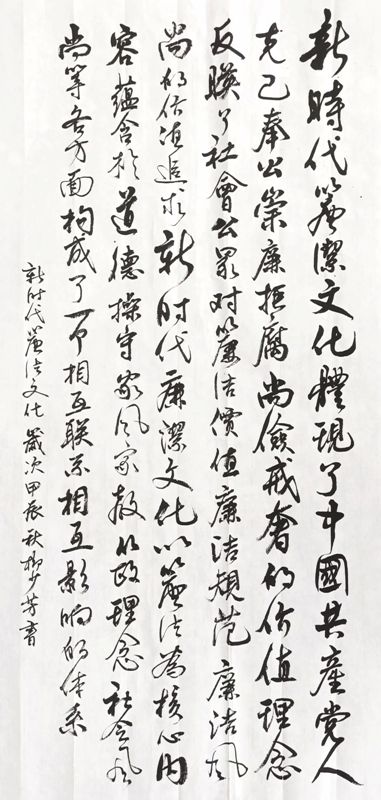 新時代簾潔文化體現了中國共產党人
克己奉公崇廉拒腐尚儉戒奢的价值理念
反映了社會公眾对簾洁價值廉洁規范廉洁风
尚的价值追求新时代廉潔文化以簾洁為核心内
容蕴含於道德操守家风家教从政理念社会风
尚等各方面构成了一个相互联系相互影响的体系
新时代簾洁文化 歲次甲辰秋柳少芳書